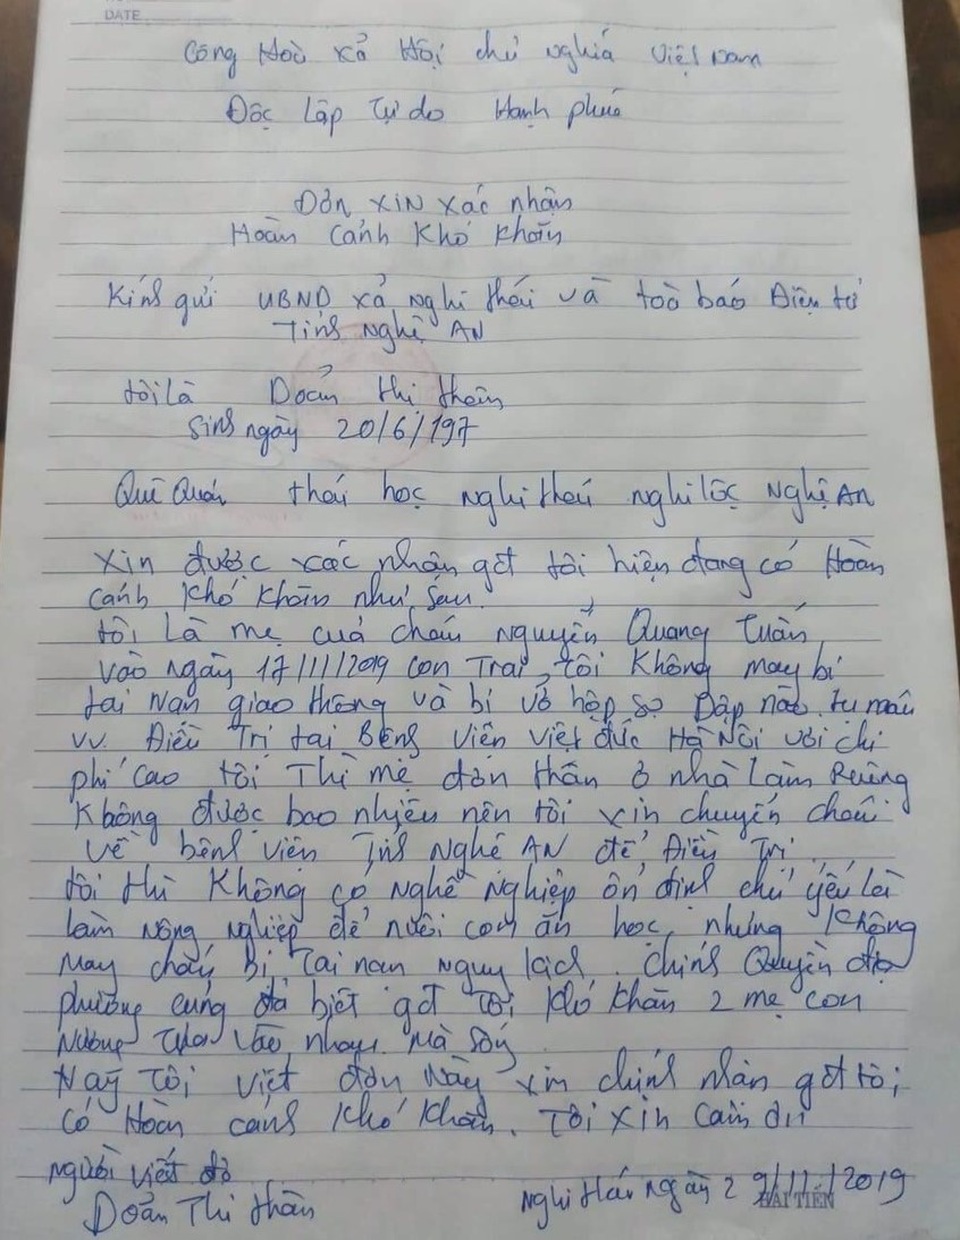 DATE
Cộng Hoà xả Hội chủ nghĩa Việt Nam
Độc Lập Tự do Hạnh phúc
Đơn xin xác nhận
Hoàn Cảnh Khó khăn
Kính gửi UBND xả nghi thái và toà báo Điện tử
Tỉnh nghệ AN
tôi là Doản thị thân
Sinh ngày 20/6/197
Quê Quán thái học nghi thái nghi lộc Nghệ AN
xin được xác nhận gđ tôi hiện đang có Hoàn
cảnh khó khăn như sau
tôi là mẹ của cháu Nguyễn Quang Tuấn
vào ngày 17/11/2019 con Trai tôi không may bị
tai nạn giao thông và bị vỡ hộp sọ Dập não tụ máu
vv. Điều Trị tại Bệnh viện việt đức Hà Nội với chi
phí cao tôi Thì mẹ đơn thân ở nhà Làm Ruộng
không được bao nhiêu nên tôi xin chuyển cháu
về bệnh viện Tỉnh Nghệ AN để Điều Trị
tôi thì không có Nghề Nghiệp ổn định chủ yếu là
làm nông nghiệp để nuôi con ăn học nhưng không
may cháu Bị Tai nan nguy kịch. chính Quyền địa
phương cũng đả biết gđ Tôi khó khăn 2 mẹ con
Nương Tựa vào nhau mà sống
Nay Tôi viết đơn này xin chính nhận gđ tôi
có Hoàn cảnh khó khăn. Tôi xin cảm ơn
người viết đơ
Doản Thị thân
Nghi thái ngày 29/11/2019
HẢI TIẾN